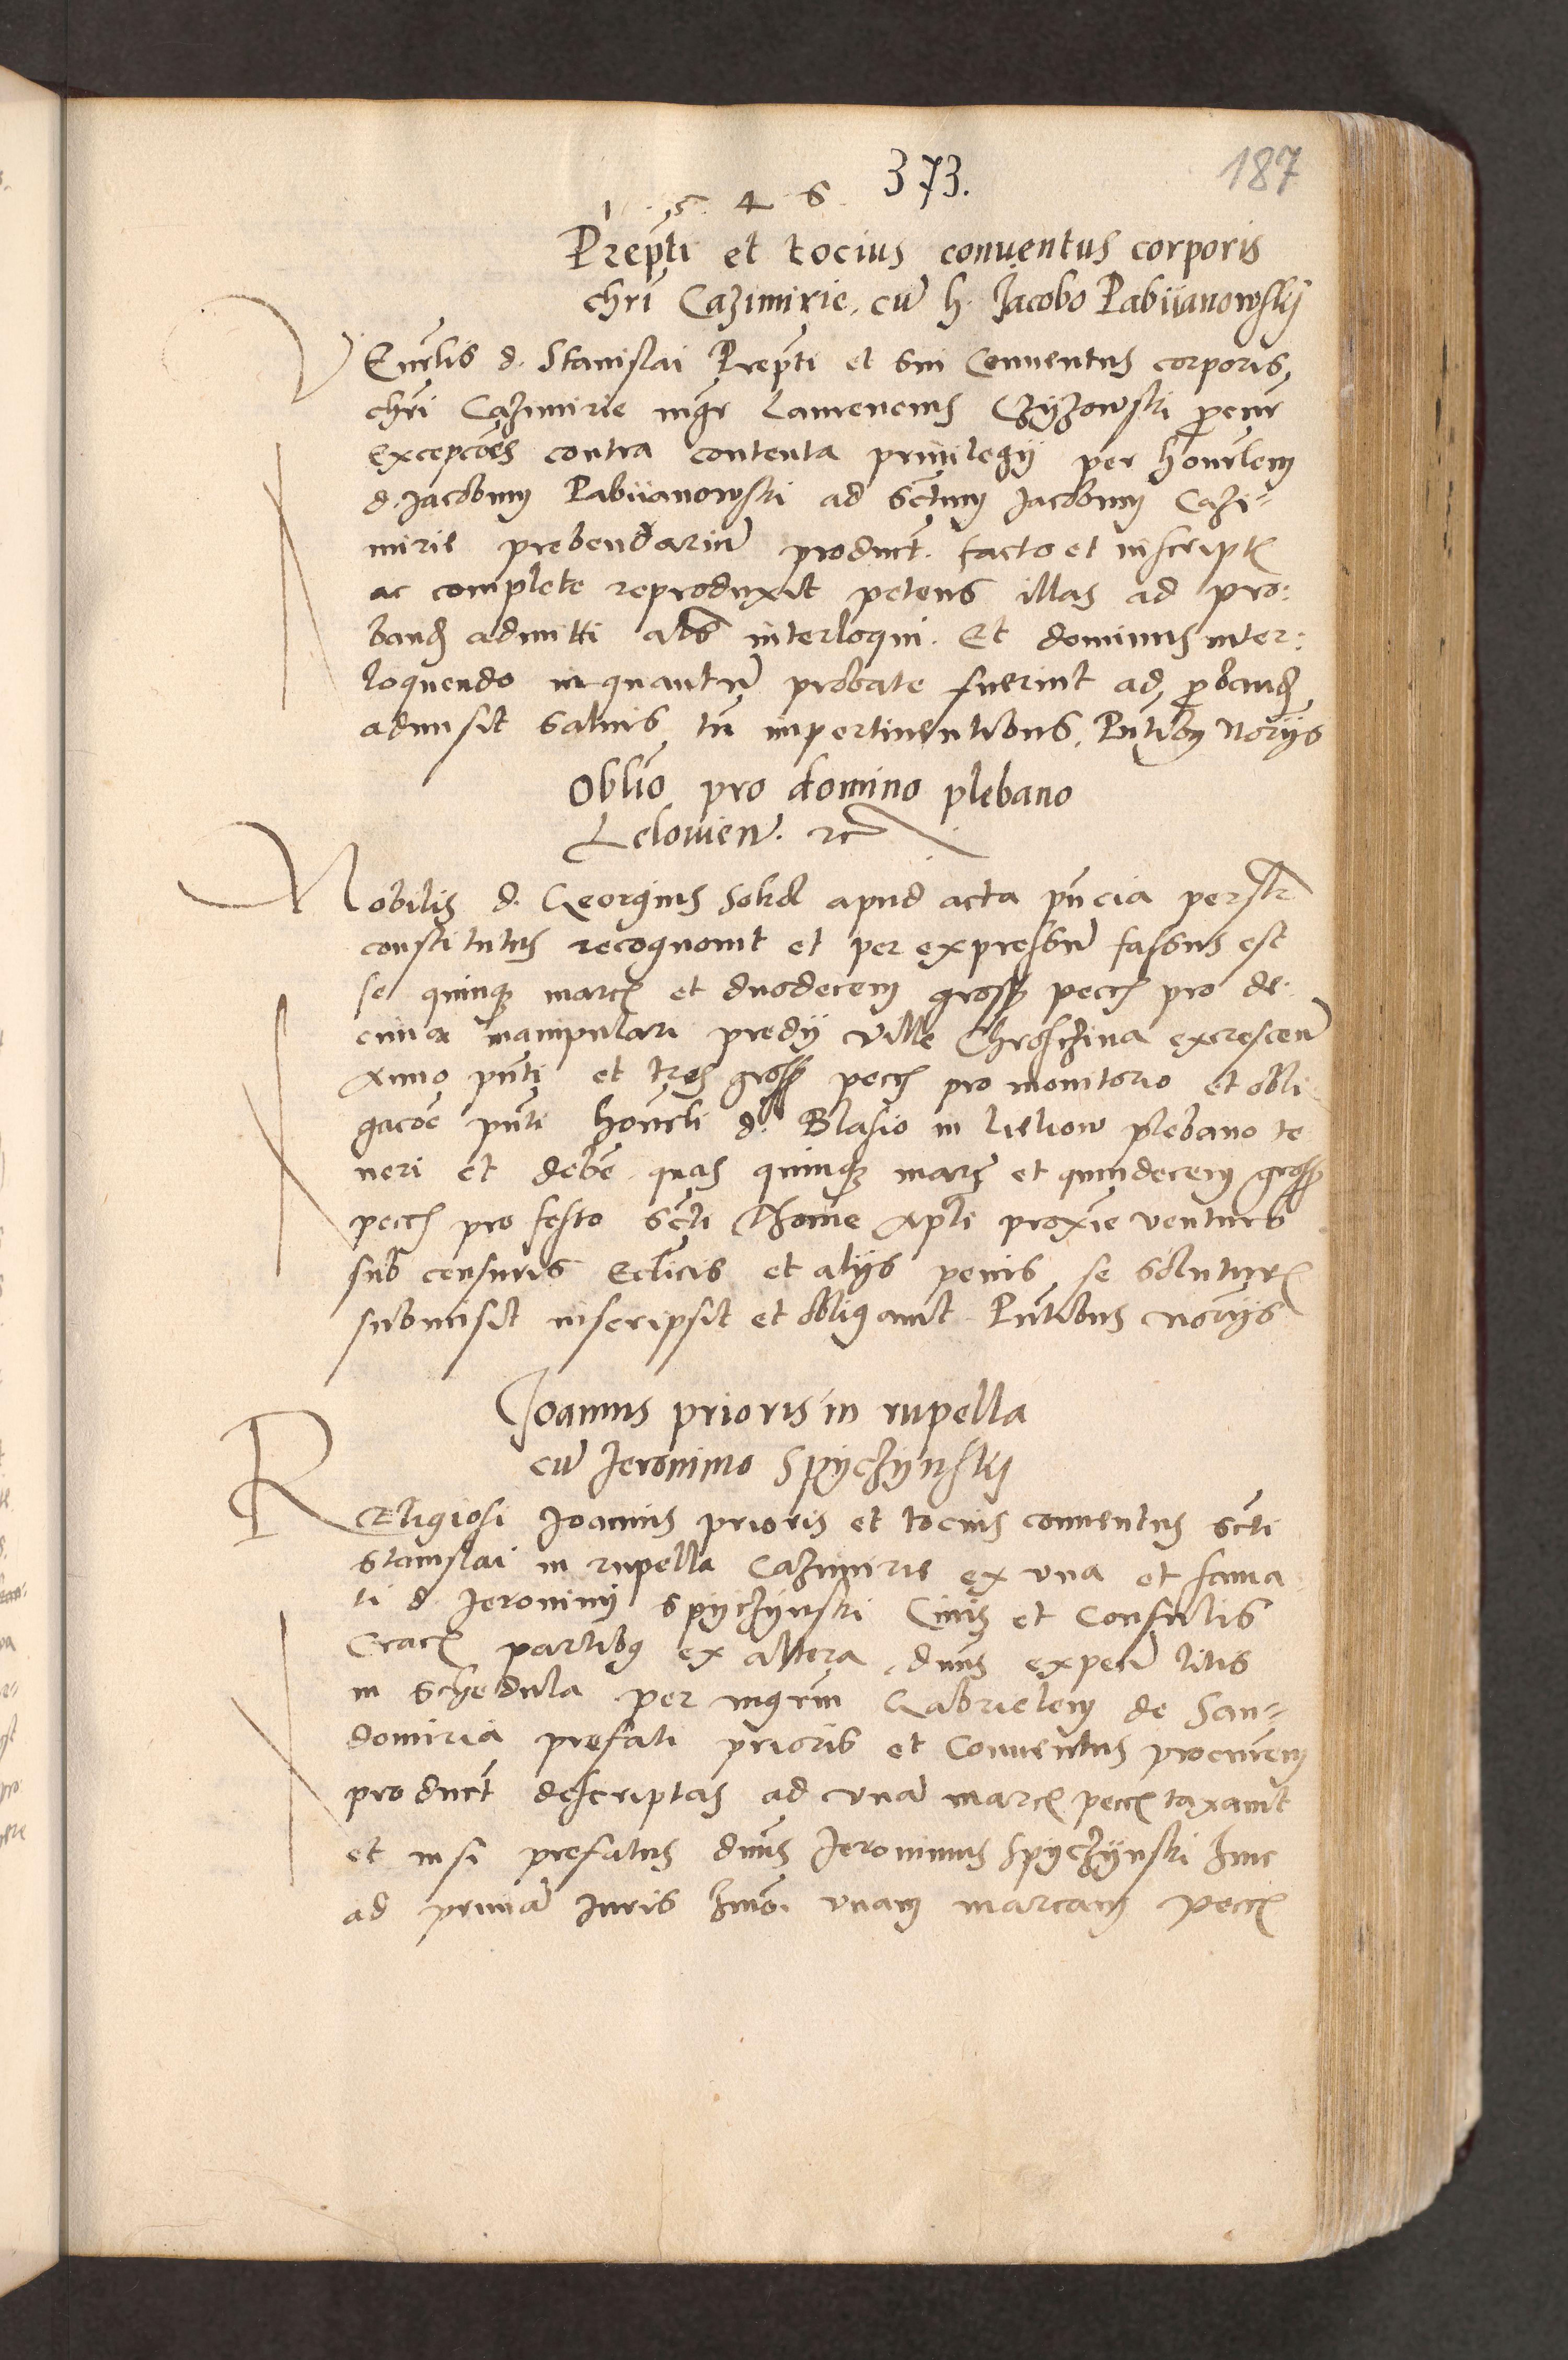 373.
187
1 5 4 6
Prepti et tocius conuentus corporis
chri Cazimirie. cu h. Jacobo Pabiianowskÿ
VEnerlis d. Stanislai Prepti et sui Conuentus corporis
chri Cazimirie mgr Laurencius Czyżowski procur
excepcoes contra contenta priuilegÿ per honorlem
d. Jacobum Pabiianowski ad sctum Jacobum Cazi-
mirie prebendariu product. facto et inscript
ac complete reproduxit petens illas ad pro:
band admitti als interloqui. Et dominus inter:
loquendo inquantu probate fuerint ad proband
admisit saluis tn impertinentibus. Pntibus Norÿs
Oblio pro domino plebano
Lelouien. rc
Nobilis d. Georgius Sokol apud acta pncia personlr
constitutus recognouit et per expressu fassus est
se quinque marcs et duodecem gross pecc pro de-
cima manipulari predÿ ville Chroschzina excrescen
Anno pnti et tres gross pecc pro monitorio et obli
gacoe pnti honorli d. Blasio in Lieliow plebano te
neri et debe quas quinque marc et quindecem gross
pecc pro festo scti Thome Apli proxie venturo
sub censuris Ecclicis et alÿs penis se soluturs
submisit inscripsit et obligauit. Pntibus Norÿs
Joannis prioris in rupella
cu Jeronimo Spyczÿnskÿ
REligiosi Joannis prioris et tocius conuentus scti
Stanislai in rupella Cazimirie ex vna et fama
ti d. Jeronimi Spÿczÿnski Ciuis et Consulis
Crac partibus ex altera, dnus expen litis
in schedula per mgrum Gabrielem de San-
domiria prefati prioris et Conuentus procurem
product descriptas ad vna marc pecc taxauit
et nisi prefatus dnus Jeronimus Spyczÿnski hinc
ad prima Juris hmoi vnam marcam pecc